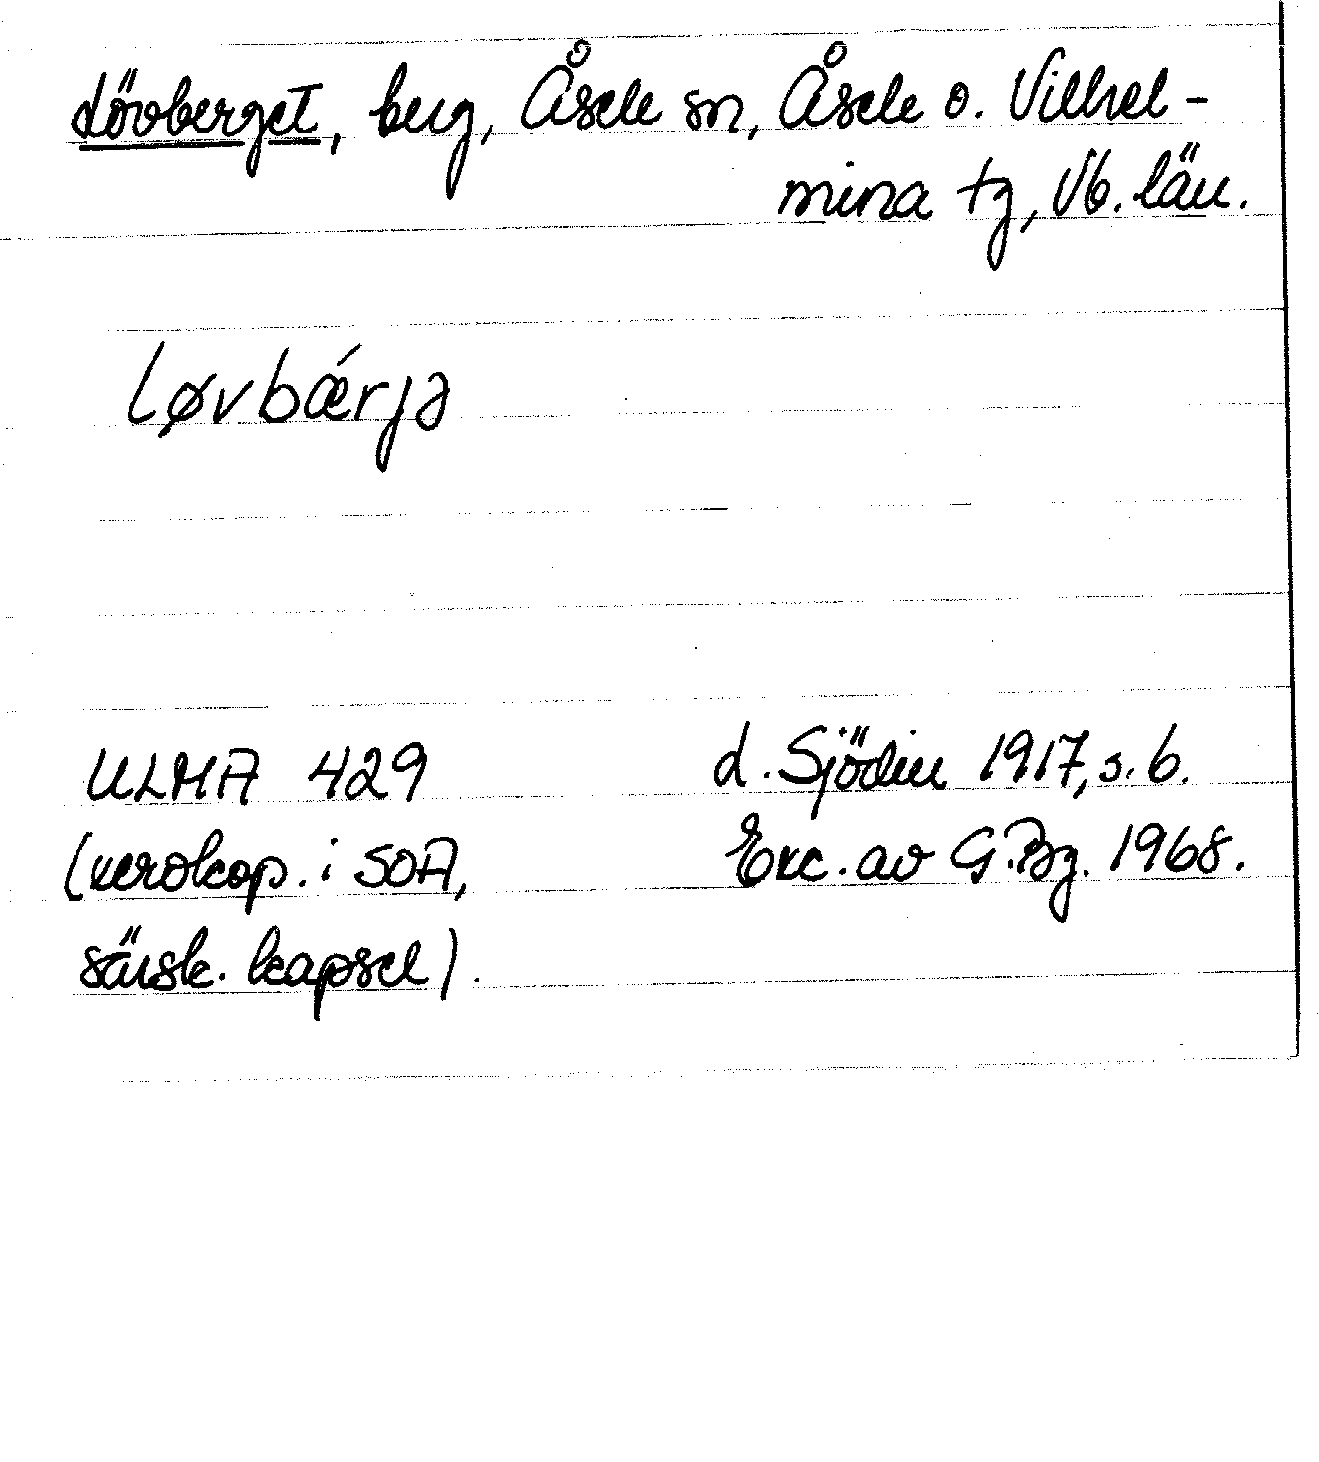 Lövberget, berg, Åsele sn, Åsele o. Vilhel-
mina tg, Vb. län.
løvbǽrjə
ULMA 429
(xerokop. i SOA,
särsk. kapsel).
L. Sjödin 1917, s. 6.
Exc. av G. Bg. 1968.